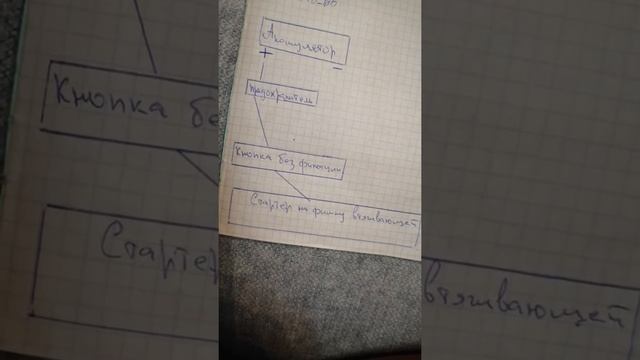 Аккумулятор
+ −
предохранитель
Кнопка без фиксации
Стартер на фишку втягивающей
Кнопка без
Стартер
втягивающей